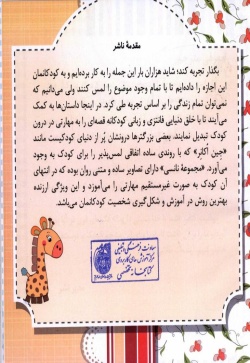 مقدمهٔ ناشر
بگذار تجربه کند؛ شاید هزاران بار این جمله را به کار برده‌ایم و به کودکانمان
این اجازه را داده‌ایم تا با تمام وجود موضوع را لمس کنند ولی می‌دانیم که
نمی‌توان تمام زندگی را بر اساس تجربه طی کرد. در اینجا داستان‌ها به کمک
می‌آیند تا با خلق دنیایی فانتزی و زبانی کودکانه قصه‌ای را به مهارتی در درون
کودک تبدیل نمایند. بعضی بزرگترها درونشان پُر از دنیای کودکیست مانند
«جین آکانر» که با روندی ساده اتفاقی لمس‌پذیر را برای کودک به وجود
می‌آورد. «مجموعهٔ نانسی» دارای تصاویر ساده و متنی روان بوده که در انتهای
آن کودک به صورت غیرمستقیم مهارتی را می‌آموزد و این ویژگی ارزنده
بهترین روش در آموزش و شکل‌گیری شخصیت کودکانمان می‌باشد.
معاونت فرهنگی و اجتماعی
کتابخانه تخصصی